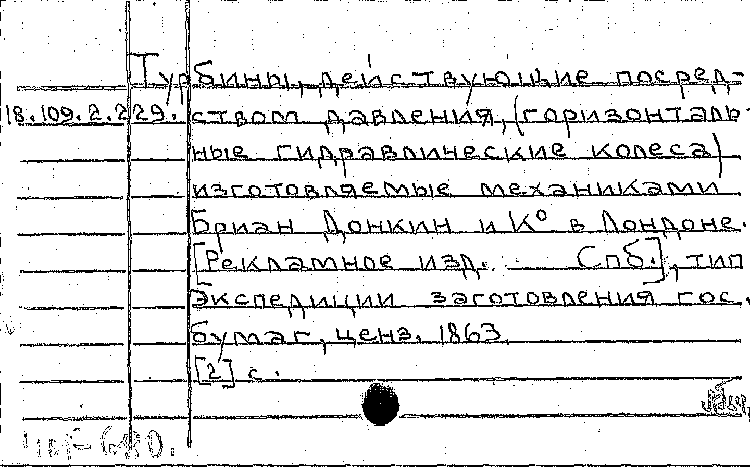 Турбины, действующие посред-
18.109.2.229. ством давления, (горизонталь-
ные гидравлические колеса)
изготовляемые механиками
Бриан Донкин и К° в Лондоне.
[Рекламное изд. Спб.], тип
Экспедиции заготовления гос.
бумаг, ценз. 1863.
[2] с.